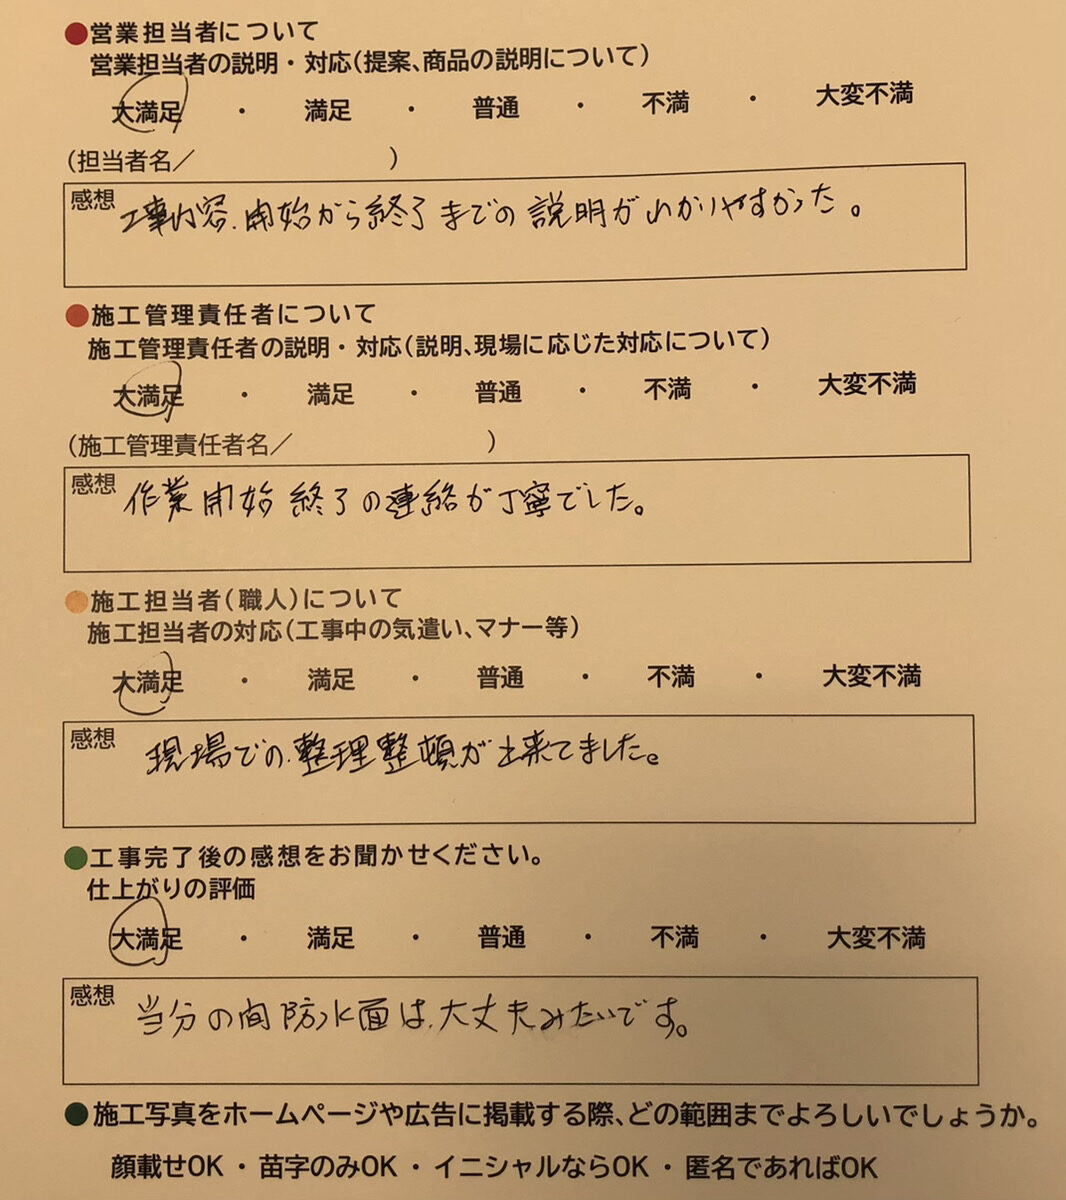 ●営業担当者について
営業担当者の説明・対応(提案、商品の説明について)
大満足 ・ 満足 ・ 普通 ・ 不満 ・ 大変不満
(担当者名／ )
感想 工事内容.開始から終了までの説明がわかりやすかった。
●施工管理責任者について
施工管理責任者の説明・対応(説明、現場に応じた対応について)
大満足 ・ 満足 ・ 普通 ・ 不満 ・ 大変不満
(施工管理責任者名／ )
感想 作業開始終了の連絡が丁寧でした。
●施工担当者(職人)について
施工担当者の対応(工事中の気遣い、マナー等)
大満足 ・ 満足 ・ 普通 ・ 不満 ・ 大変不満
感想 現場での.整理整頓が出来てました。
●工事完了後の感想をお聞かせください。
仕上がりの評価
大満足 ・ 満足 ・ 普通 ・ 不満 ・ 大変不満
感想 当分の間防水面は.大丈夫みたいです。
●施工写真をホームページや広告に掲載する際、どの範囲までよろしいでしょうか。
顔載せOK ・ 苗字のみOK ・ イニシャルならOK ・ 匿名であればOK